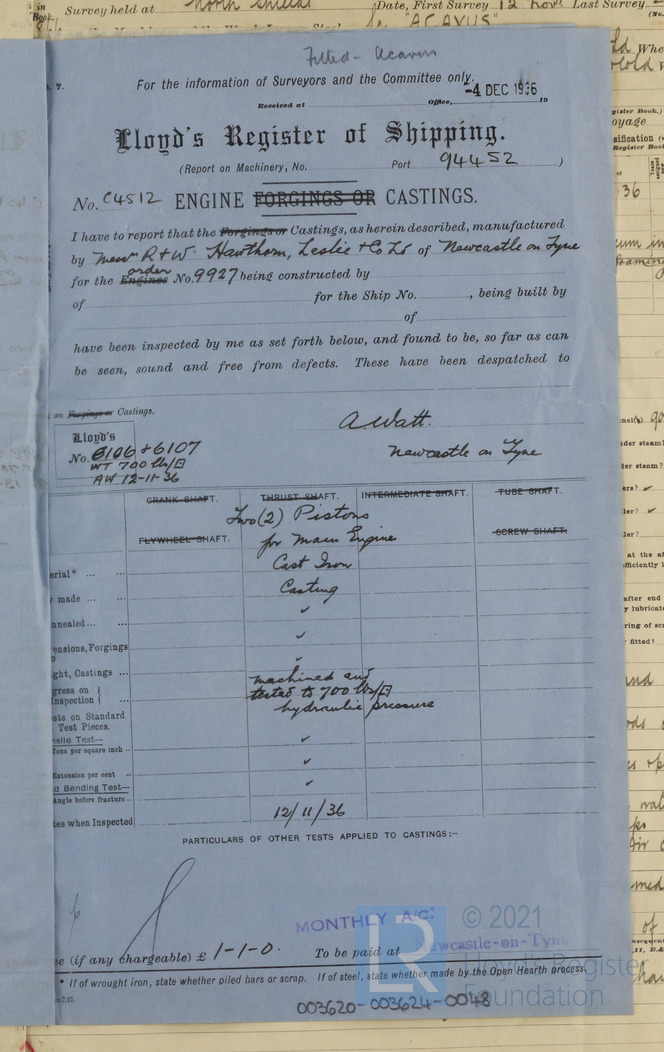 Survey held at North Shields Date, First Survey 12 Nov. Last Survey
Book.
"ACAVUS"
Fitted - Acavus
For the information of Surveyors and the Committee only.
-4 DEC 1936
Received at Office, 19
Lloyd's Register of Shipping.
(Report on Machinery, No. Port 94452 )
No. C4512 ENGINE FORGINGS OR CASTINGS.
I have to report that the Forgings or Castings, as herein described, manufactured
by Messrs R & W. Hawthorn, Leslie & Co Ld of Newcastle on Tyne
order
for the Engines No. 9927 being constructed by
of for the Ship No. , being built by
of
have been inspected by me as set forth below, and found to be, so far as can
be seen, sound and free from defects. These have been despatched to
on Forgings or Castings.
Lloyd's
No. 6106 & 6107
WT 700 lbs/□
AW 12-11-36
A. Watt.
Newcastle on Tyne
CRANK SHAFT. THRUST SHAFT. INTERMEDIATE SHAFT. TUBE SHAFT.
Two (2) Pistons
FLYWHEEL SHAFT. for Main Engine SCREW SHAFT.
erial* ... ... Cast Iron
made ... ... Casting
nnealed ... ... ✓
ensions, Forgings ✓
ght, Castings ... ✓
gress on
nspection
machined and
tested to 700 lbs/□
hydraulic pressure
sts on Standard
Test Pieces.
nsile Test—
Tons per square inch ... ✓
Extension per cent ✓
d Bending Test—
Angle before fracture ... ✓
tes when Inspected 12/11/36
PARTICULARS OF OTHER TESTS APPLIED TO CASTINGS:—
MONTHLY A/C.
e (if any chargeable) £ 1-1-0. To be paid at Newcastle-on-Tyne
* If of wrought iron, state whether piled bars or scrap. If of steel, state whether made by the Open Hearth process.
003620-003624-0048
© 2021
Lloyd's Register
Foundation